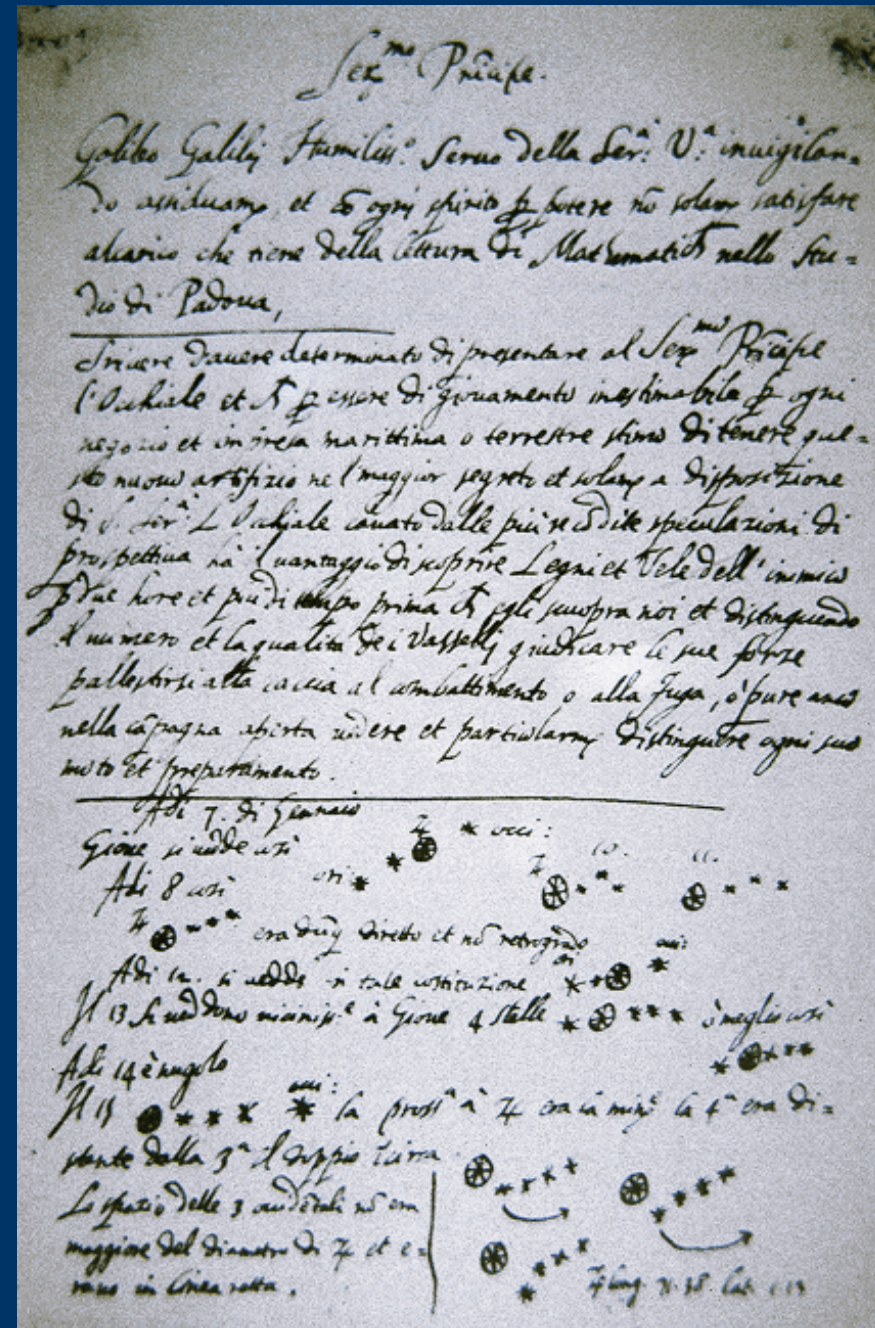 Ser.mo Principe.
Galileo Galilei Humiliss.o Servo della Ser.a V.a invigilan=
do assiduam.e, et cō ogni spirito p potere nō solam.e satisfare
alcarico che tiene della lettura di Mathematich nello Stu=
dio di Padova,
Scrivere d'avere determinato di presentare al Ser.mo Prīcipe
l'Occhiale et ch p essere di giovamento inestimabile p ogni
negozio et impresa marittima o terrestre stimo di tenere que=
sto nuovo artifizio nel maggior segreto et solam.e a disposizione
di S. Ser.a L'Ochiale cavato dalle più recōdite speculazioni di
prospettiva hà il vantaggio di scoprire Legni et Vele dell'inimico
p due hore et più di tempo prima ch egli scuopra noi et distinguendo
il numero et la qualità de i Vasselli giudicare le sue forze
pallestirsi alla caccia al combattimento o alla fuga, ò pure anco
nella cāpagna aperta vedere et particolarm.e distinguere ogni suo
moto et preparamento.
Adi 7. di Gennaio
Giove si vedde cosi ori: occi:
Adi 8 cosi 10. 11.
era dūq diretto et nō retrogrado
Adi 12. si vedde in tale costituzione ori occi:
Il 13 si veddono vicinis.e à Giove 4 stelle ò meglio cosi
Adi 14 è nugolo
Il 15 occi: la pross.a à ♃ era la min.e la 4.a era di=
stante dalla 3.a il doppio circa
Lo spazio delle 3 occidētali nō era
maggiore del diametro di ♃ et e=
rano in linea retta.
♃ long. 71.38 lat. 1.13